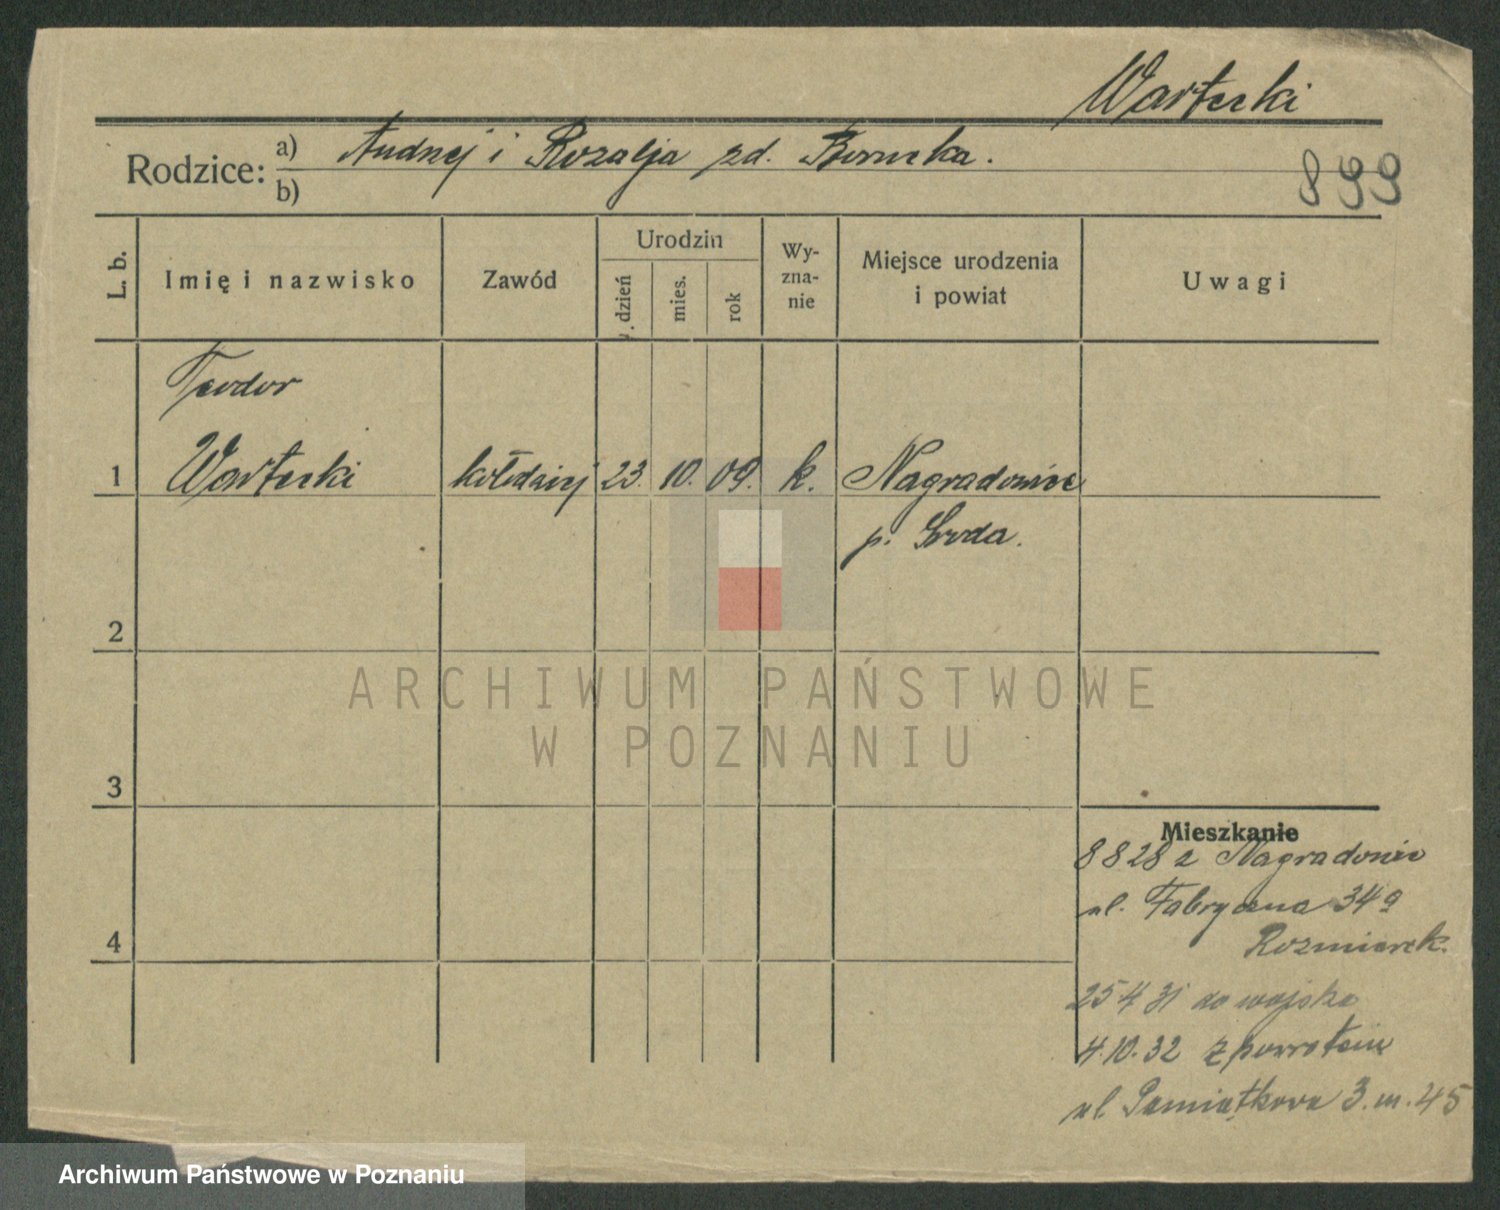 Wartecki
Rodzice: a) Andrzej i Rozalja zd.
b)
899
L. b.
Imię i nazwisko
Zawód
Urodzin
dzień
mies.
rok
Wy-
zna-
nie
Miejsce urodzenia
i powiat
Uwagi
Teodor
1 Wartecki kołodziej 23. 10. 09. k. Nagradowice
p. Środa.
2
3
4
Mieszkanie
8 8 28 z Nagradowic
ul. Fabryczna 34a
25 4 31 do wojska
4.10.32 z powrotem
ul Pamiątkowa 3. m. 45
ARCHIWUM PAŃSTWOWE
W POZNANIU
Archiwum Państwowe w Poznaniu